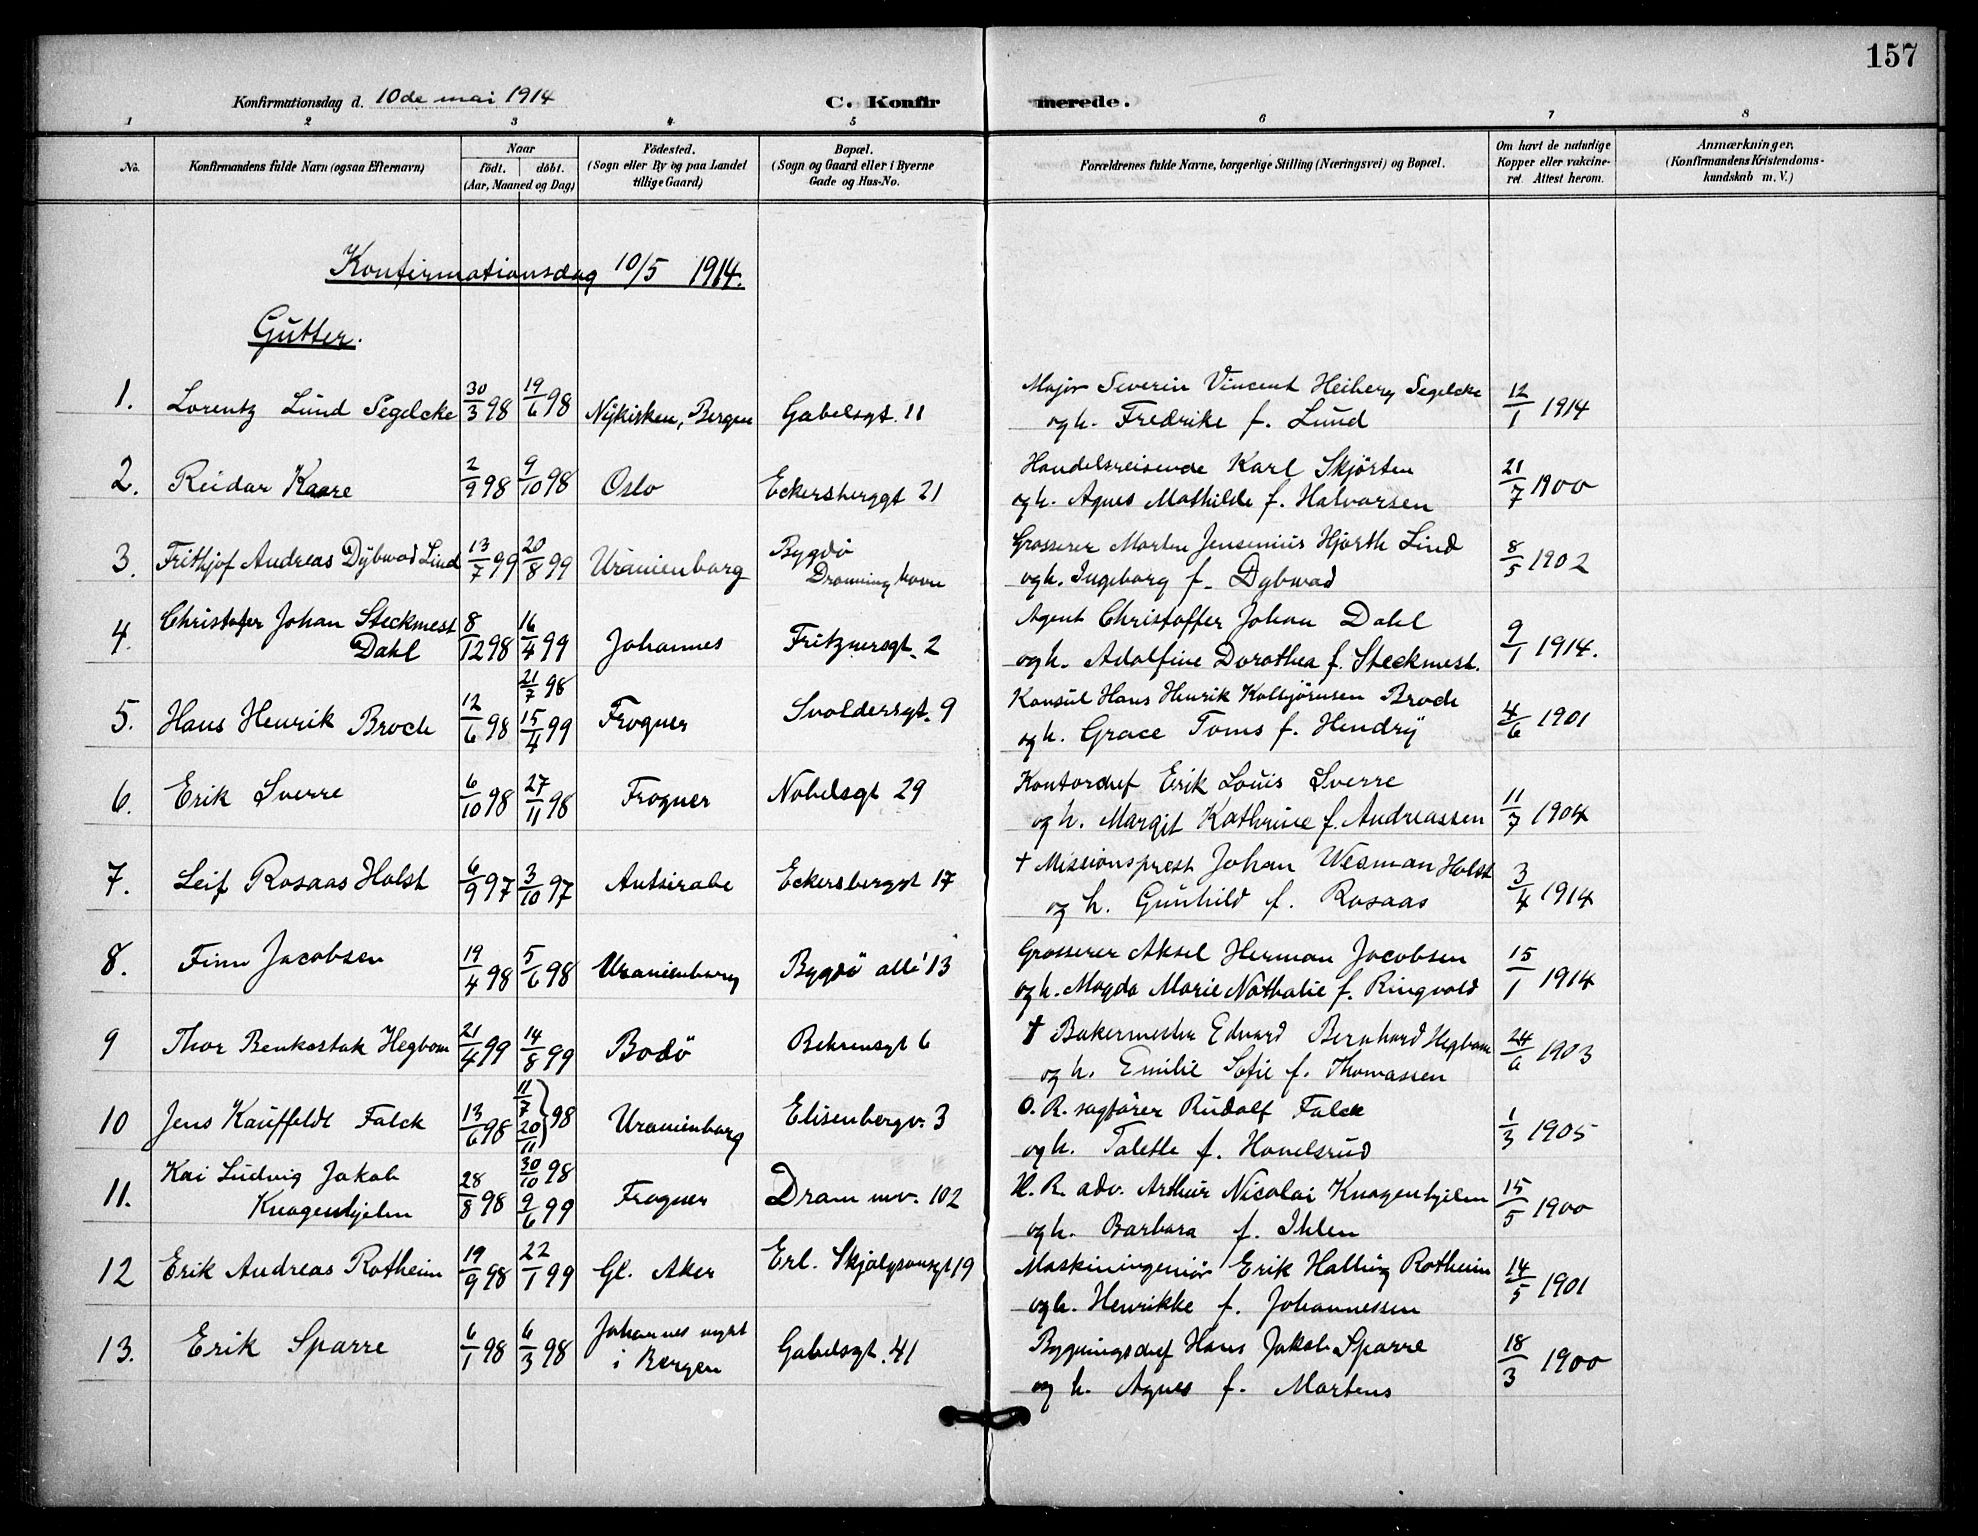 157
Konfirmationsdag d. 10de mai 1914 C. Konfir merede.
1 2 3 4 5 6 7 8
No. Konfirmandens fulde Navn (ogsaa Efternavn) Naar Födt. döbt. (Aar, Maaned og Dag) Födested. (Sogn eller By og paa Landet tillige Gaard) Bopæl. (Sogn og Gaard eller i Byerne Gade og Hus-No. Forældrenes fulde Navne, borgerlige Stilling (Næringsvei) og Bopæl. Om havt de naturlige Kopper eller vakcineret. Attest herom. Anmærkninger. (Konfirmandens Kristendomskundskab m. V.)
Konfirmationsdag 10/5 1914.
Gutter.
1. Lorentz Lund Segelcke 30/3 98 19/6 98 Nykirken, Bergen Gabelsgt. 11 Major Severin Vincent Heiberg Segelcke 12/1 1914
og h. Fredrike f. Lund
2. Reidar Kaare 2/9 98 9/10 98 Oslo Eckersberggt 21 Handelsreisende Karl Skjörten 21/7 1900
og h. Agnes Mathilde f. Halvorsen
3. Frithjof Andreas Dybwad Lind 13/7 99 20/8 99 Uranienborg Bygdö Grosserer Morten Jensenius Hjorth Lind 8/5 1902
Dronning havn og h. Ingeborg f. Dybwad
4. Christofer Johan Steckmest 8/12 98 16/4 99 Johannes Fritznersgt. 2 Agent Christoffer Johan Dahl 9/1 1914.
Dahl og h. Adolfine Dorothea f. Steckmest.
5. Hans Henrik Broch 12/6 98 21/7 98 15/4 99 Frogner Svoldersgt. 9 Konsul Hans Henrik Kolbjörnsen Broch 4/6 1901
og h. Grace Toms f. Hendry
6. Erik Sverre 6/10 98 27/11 98 Frogner Nobelsgt 29 Kontorchef Erik Louis Sverre 11/7 1904
og h. Margit Kathrine f. Andreassen
7. Leif Rosaas Holst 6/9 97 3/10 97 Antsirabe Eckersbergst 17 † Missionsprest Johan Wesman Holst 3/4 1914
og h. Gunhild f. Rosaas
8. Finn Jacobsen 19/4 98 5/6 98 Uranienborg Bygdö allé 13 Grosserer Aksel Herman Jacobsen 15/1 1914
og h. Magda Marie Nathalie f. Ringvold
9 Thor Benkestok Hegbom 21/4 99 14/8 99 Bodö Behrensgt 6 † Bakermester Edvard Bernhard Hegbom 24/6 1903
og h. Emilie Sofie f. Thomassen
10 Jens Kauffeldt Falck 13/6 98 11/7 20/11 } 98 Uranienborg Elisenbergv. 3 O. R. sagförer Rudolf Falck 1/3 1905
og h. Talette f. Hovelsrud
11. Kai Ludvig Jakob 28/8 98 30/10 98 9/6 99 Frogner Dram mv. 102 H. R. adv. Arthur Nicolai Knagenhjelm 15/5 1900
Knagenhjelm og h. Barbara f. Ihlen
12 Erik Andreas Rotheim 19/9 98 22/1 99 Gl. Aker Erl. Skjalgsonsgt 19 Maskiningeniör Erik Halling Rotheim 14/5 1901
og h. Henrikke f. Johannessen
13. Erik Sparre 6/1 98 6/3 98 Johannes Gabelsgt. 41 Bygningschef Hans Jakob Sparre 18/3 1900
i Bergen og h. Agnes f. Martens